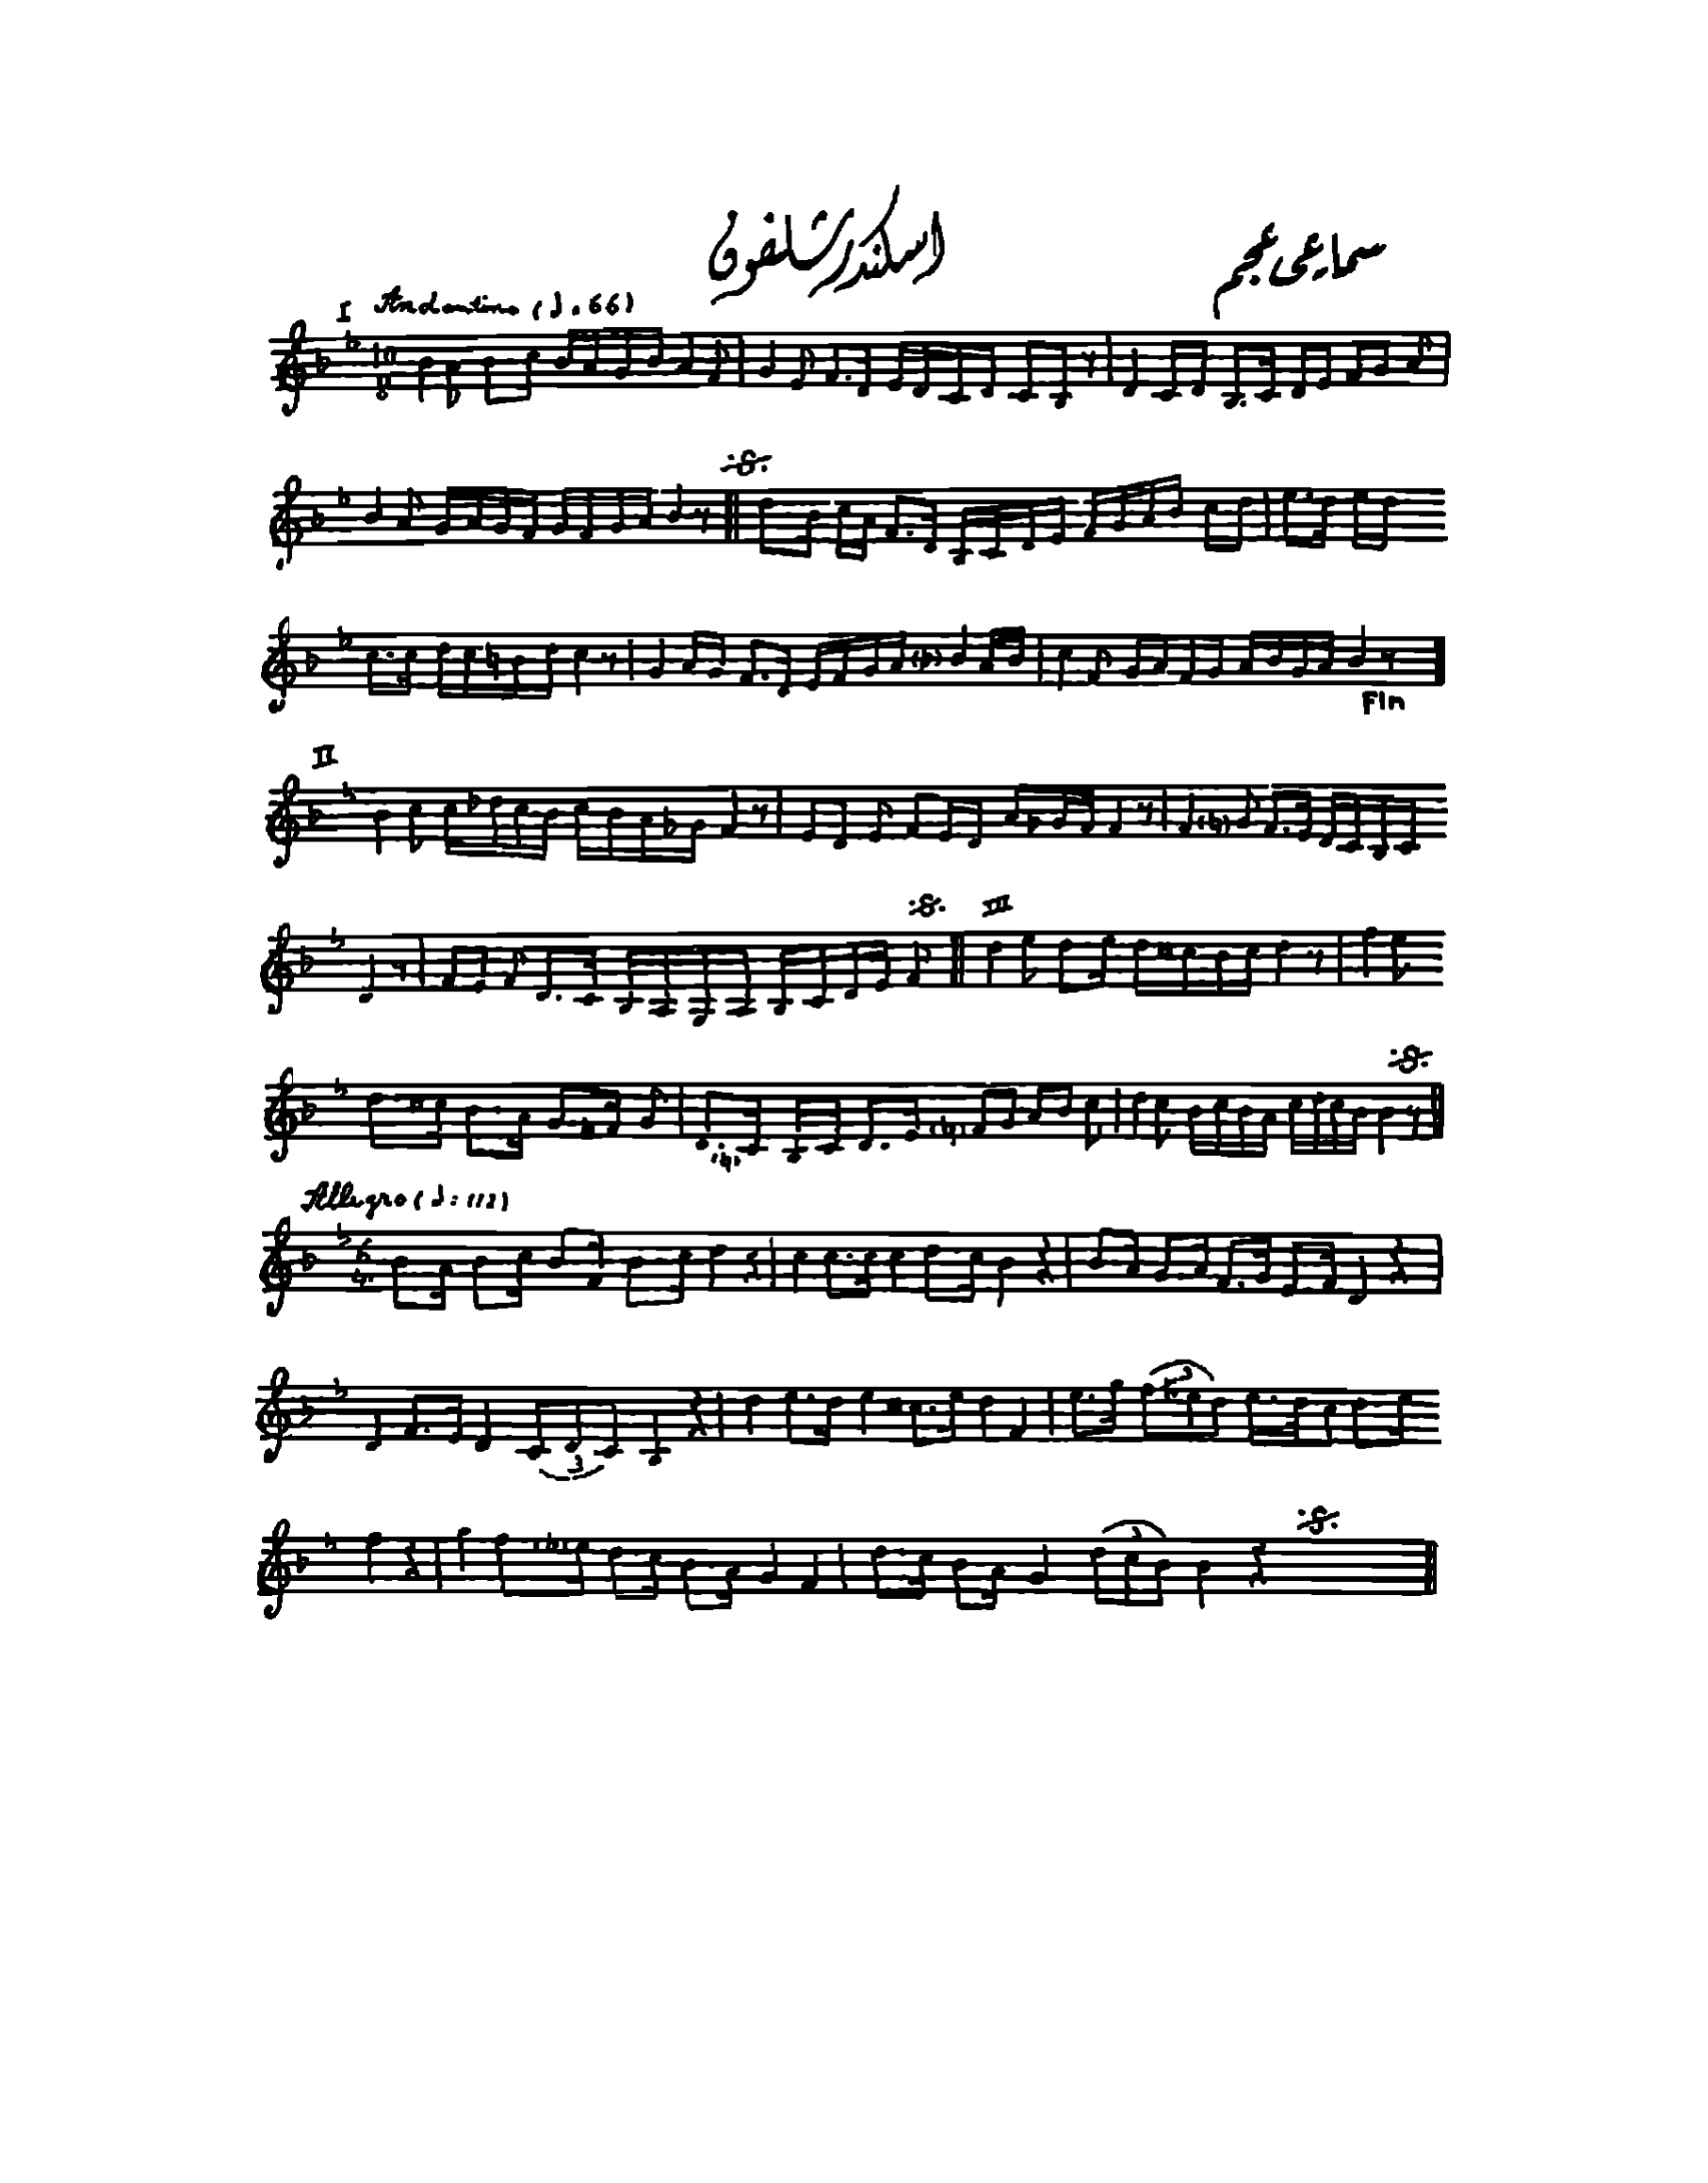 سماعي عجم
اسكندر شلفون
I Andantino (♩.66)
10
8
Fin
II
III
Allegro (♩:112)
6
4
3
3
3